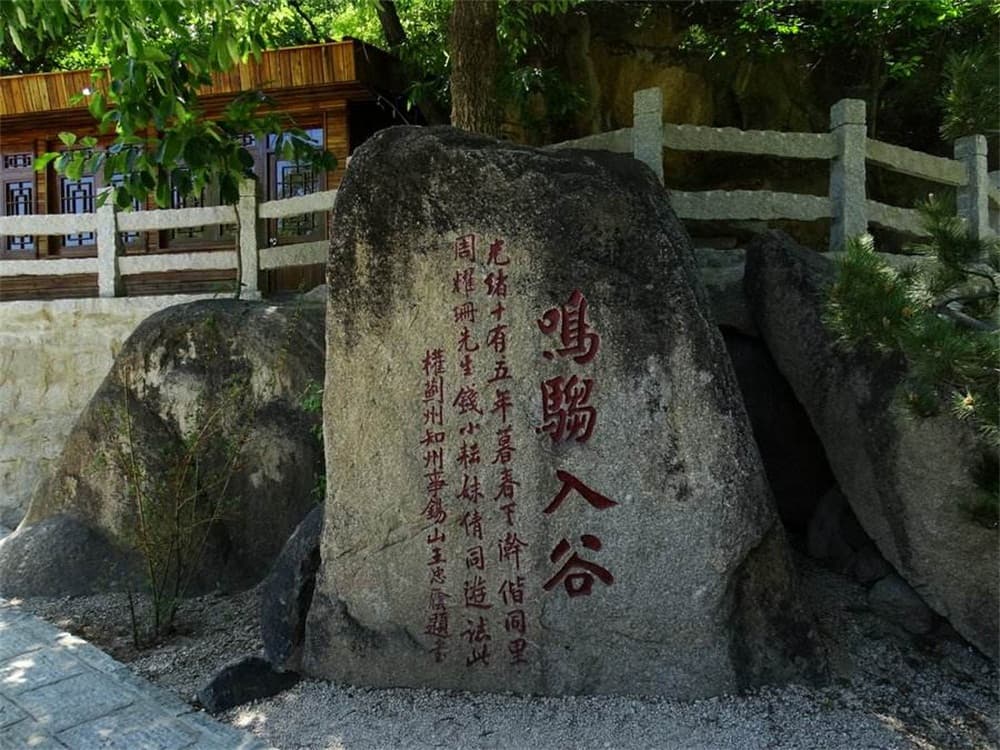 鳴騶入谷
光绪十有五年暮春下澣偕同里
周耀珊先生錢小耘妹倩同遊誌此
權薊州知州事錫山王忠廕題書